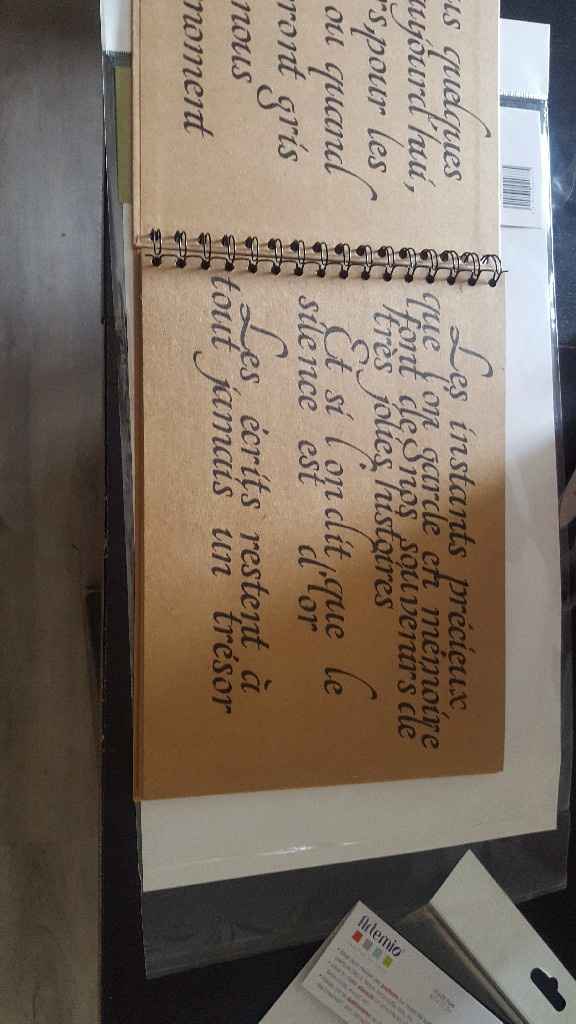 quelques
aujourd'hui,
pour les
ou quand
ront gris
nous
moment
Les instants précieux
que l'on garde en mémoire
font de nos souvenirs de
très jolies histoires
Et si l'on dit que le
silence est d'or
Les écrits restent à
tout jamais un trésor
Artemio